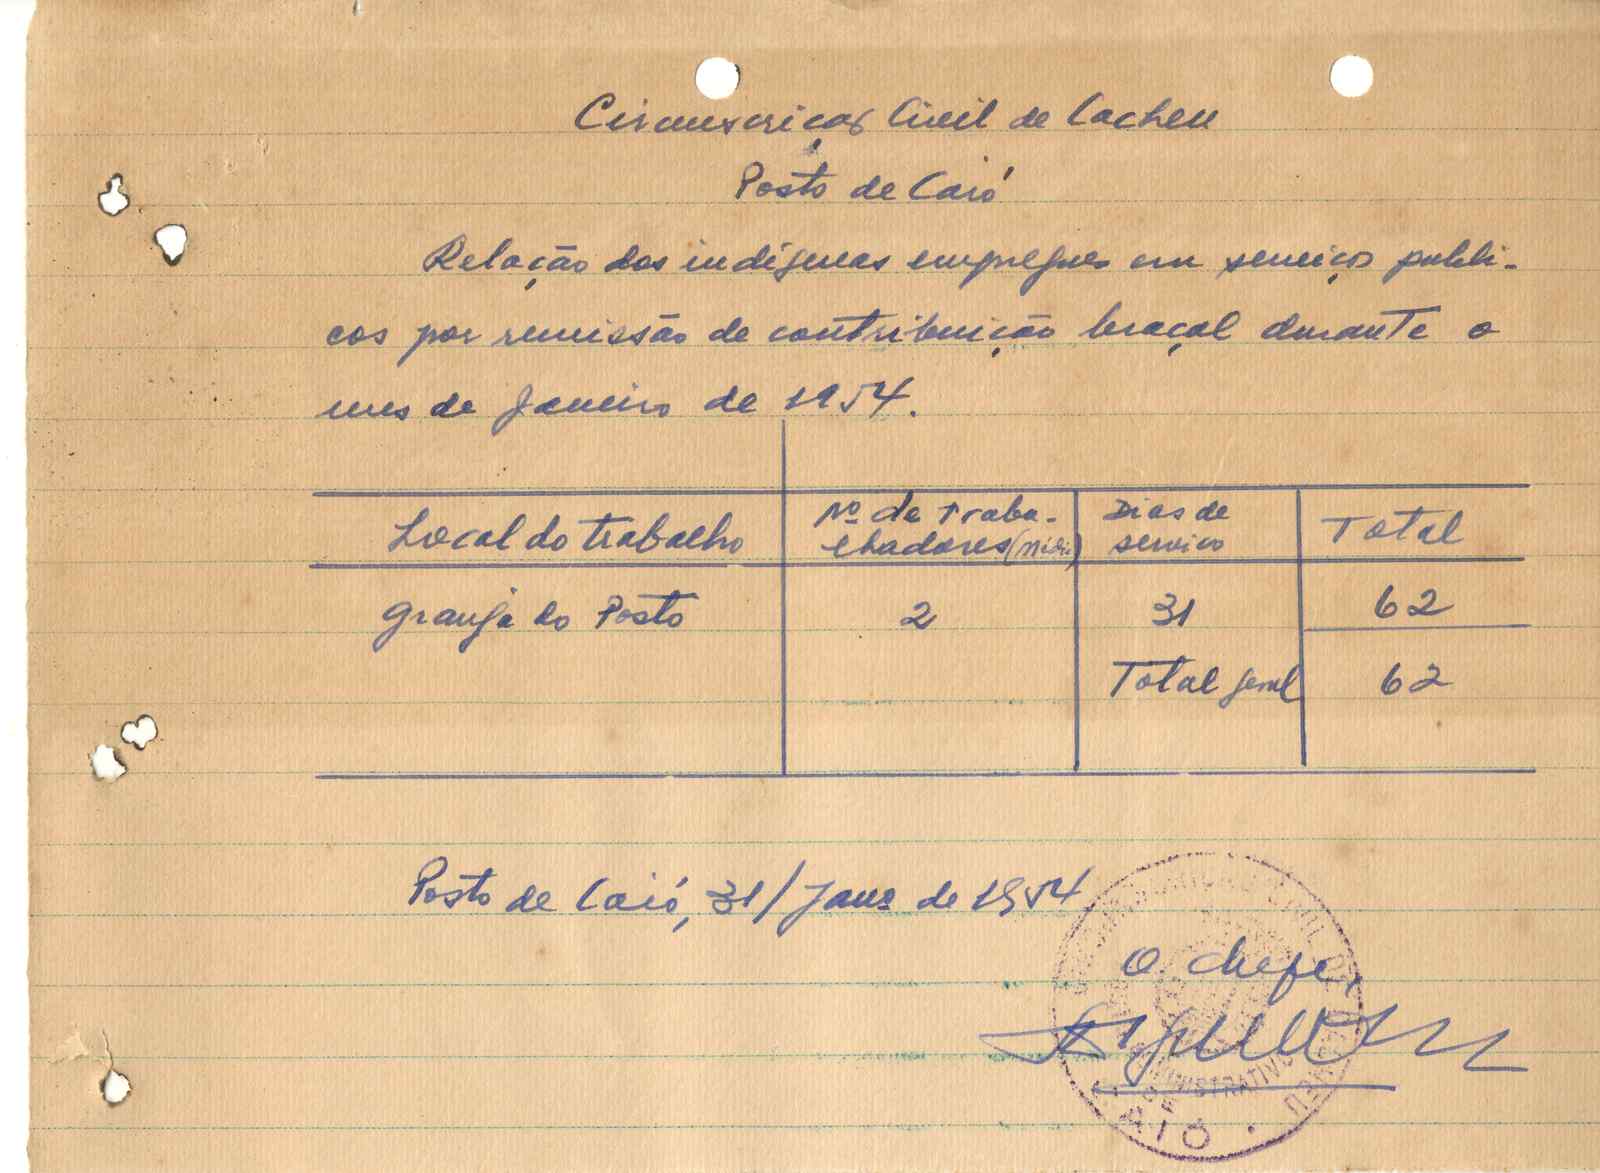 Circunscrição Civil de Cacheu
Posto de Caió
Relação dos indígenas empregues em serviços públi-
cos por remissão de contribuição braçal durante o
mes de Janeiro de 1954.
Local do trabalho
Nº de traba-
lhadores
Dias de
serviço
Total
Granja do Posto
2
31
62
Total geral
62
Posto de Caió, 31/Janº de 1954
O chefe,
CIVIL DE CACHEU
ADMINISTRATIVO
DE
CAIÓ